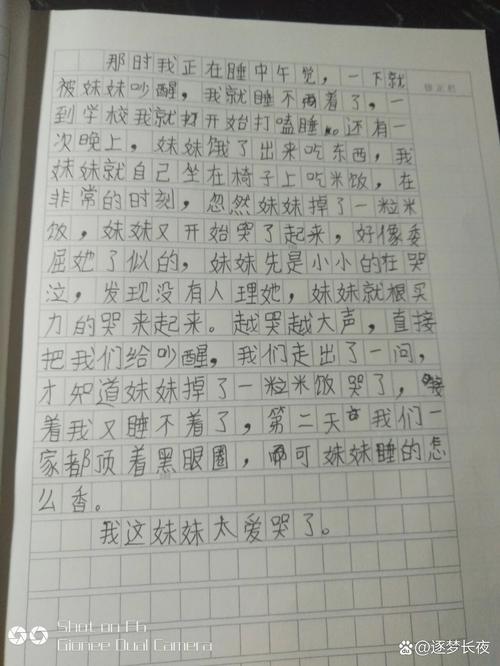 那时我正在睡中午觉，一下就
被妹妹吵醒，我就睡不着了，一
到学校我就开始打嗑睡。还有一
次晚上，妹妹饿了出来吃东西，我
妹妹就自己坐在椅子上吃米饭，在
非常的时刻，忽然妹妹掉了一粒米
饭，妹妹又开始哭了起来，好像委
屈她了似的，妹妹先是小小的在哭
泣，发现没有人理她，妹妹就根买
力的哭来起来。越哭越大声，直接
把我们给吵醒，我们走出了一问，
才知道妹妹掉了一粒米饭哭了，接
着我又睡不着了，第二天我们一
家都顶着黑眼圈，而可妹妹睡的怎
么香。
我这妹妹太爱哭了。
Shot on F6
Gionee Dual Camera
@逐梦长夜